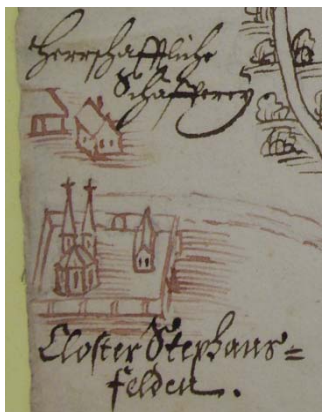 Herrschafftliche
Schäfferey
Closter Stephans=
felden.